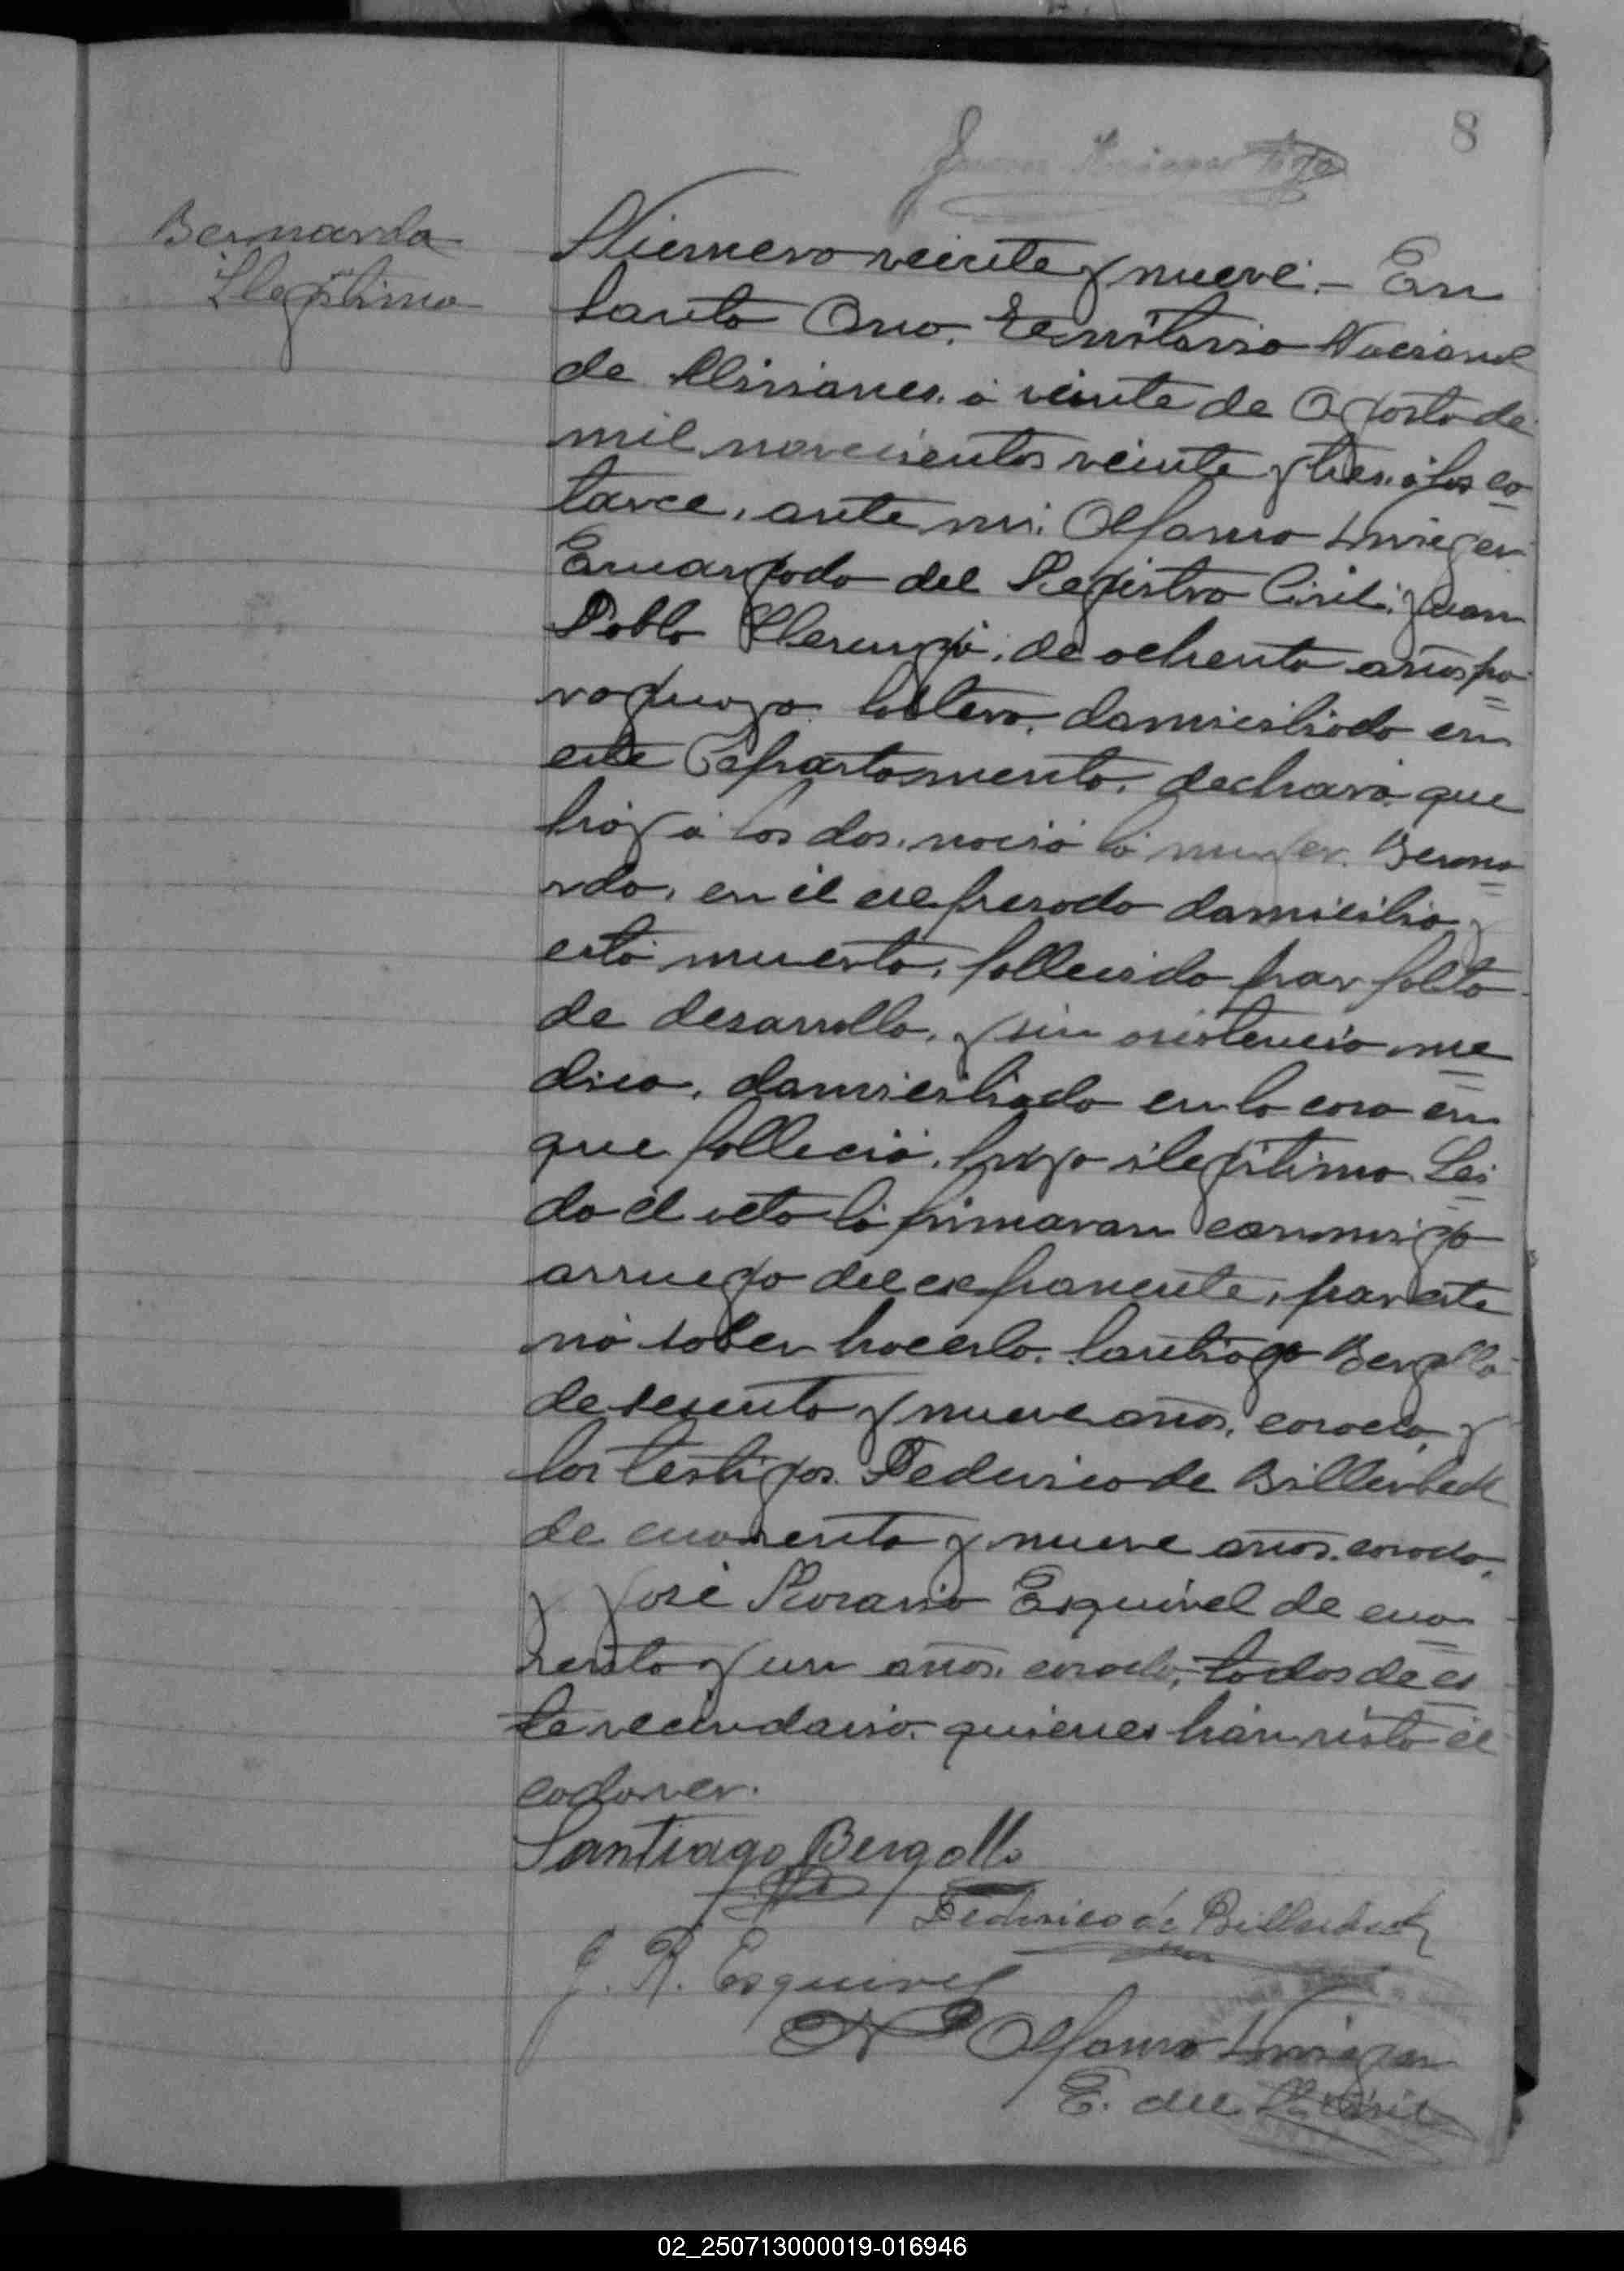 8
Bernarda
Ilegítima
Número veinte y nueve.- En
Santa Ana. Territorio Nacional
de Misiones. á veinte de Agosto de
mil novecientos veinte y tres. á las ca
torce, ante mi. Alfonso
Encargado del Registro Civil. Juan
Pablo de ochenta años pa
raguayo soltero. domiciliado en
este Departamento. declaró que
hoy á las dos. nació la mujer. Berna
rda. en el expresado domicilio y
está muerta. fallecida por falta
de desarrollo. y sin asistencia me
dica. domiciliada en la casa en
que falleció. hija ilegítima. Lei
da el acta la firmaron conmigo
arruego del exponente, por este
nó saber hacerlo. Santiago Bergallo
de sesenta y nueve años. casado y
los testigos. Federico de Billerbeck
de cuarenta y nueve años. casado,
y José Rosario Esquivel de cua
renta y un años. casado, todos de es
te vecindario. quienes hán visto él
cadaver.
Santiago Bergallo
Federico de Billerbeck
J. R. Esquivel
Alfonso
E. del R. Civil
02_250713000019-016946